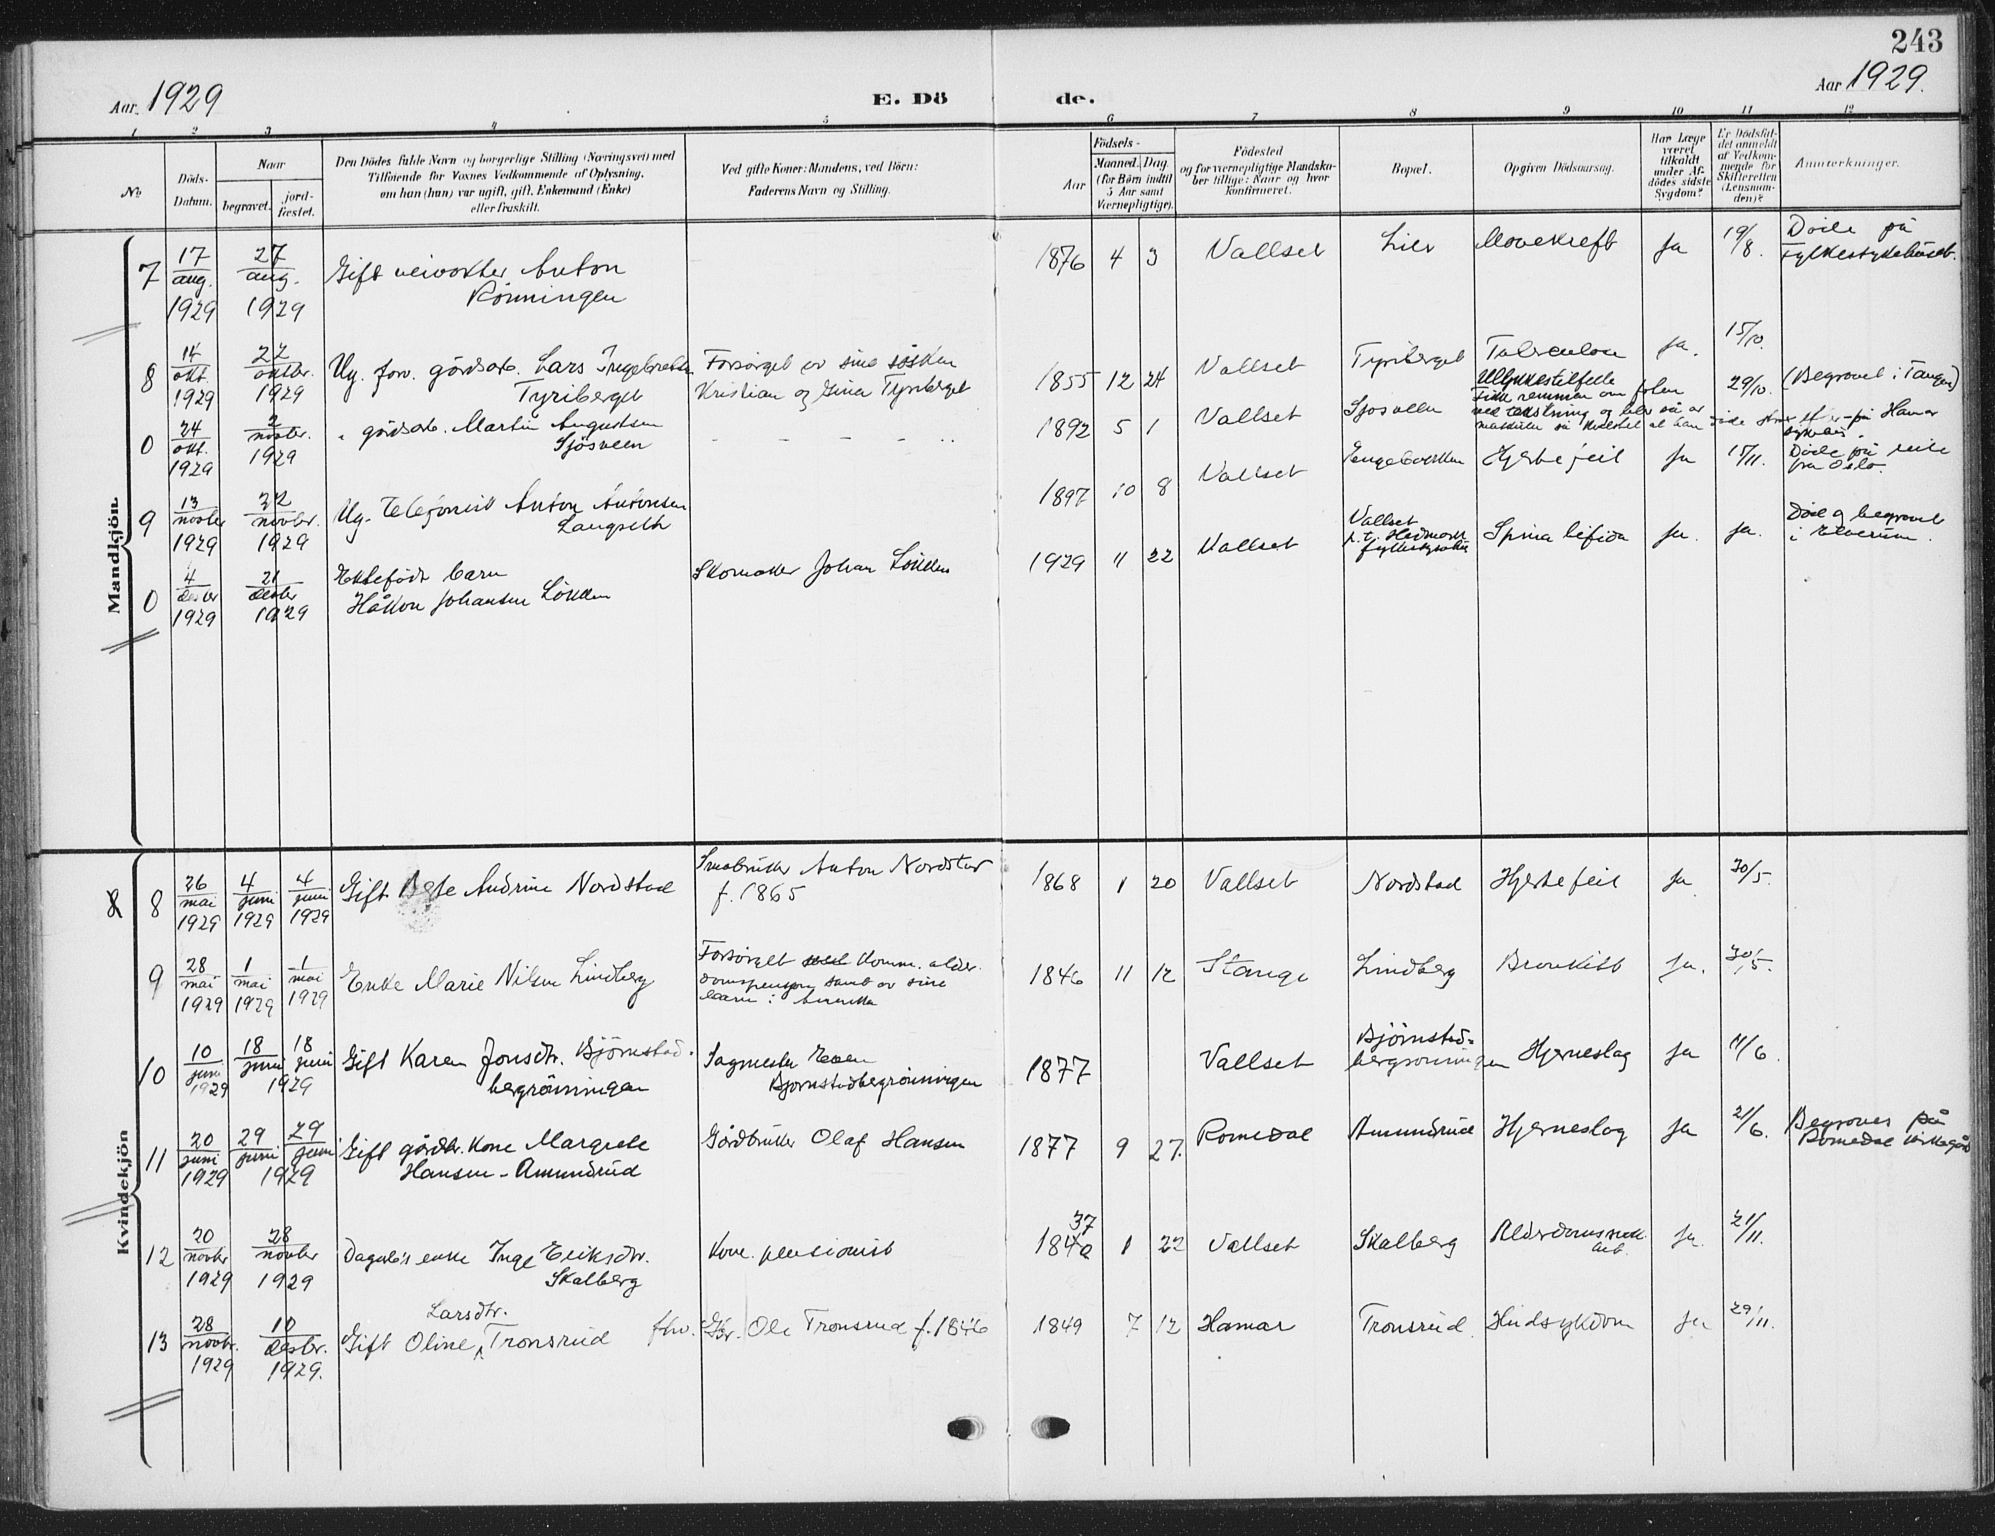 243
Aar 1929
E. Dö
de.
Aar 1929.
1 2 3 4 5 6 7 8 9 10 11 12
No
Döds-
Datum.
Naar
begravet.
jord-
fæstet.
Den Dödes fulde Navn og borgerlige Stilling (Næringsvei) med
Tilföiende for Voxnes Vedkommende af Oplysning,
om han (hun) var ugift, gift, Enkemand (Enke)
eller fraskilt.
Ved gifte Koner: Mandens, ved Börn:
Faderens Navn og Stilling.
Födsels-
Aar
Maaned. Dag
(for Börn indtil
5 Aar samt
Værnepligtige).
Födested
og for værnepligtige Mandska-
ber tillige: Naar og hvor
konfirmeret.
Bopæl.
Opgiven Dödsaarsag.
Har Læge
været
tilkaldt
under Af-
dödes sidste
Sygdom?
Er Dödsfal-
det anmeldt
af Vedkom-
mende for
Skifteretten
(Lensman-
den)?
Anmærkninger.
Mandkjön
7 17/aug. 1929 27/aug. 1929 Gift veivokter Anton
Rönningen
1876 4 3 Vallset Lier Mavekreft Ja 19/8. Döde på
Fylkessykehuset.
8 14/okt. 1929 22/oktbr. 1929 Ug. forv. gårdsarb. Lars Ingebretsen
Tyriberget
Forsörget av sine sösken
Kristian og Gina Tyriberget
1855 12 24 Vallset Tyriberget Tuberculose Ja. 15/10.
0 24/okt. 1929 2/novbr. 1929 " gårdsarb. Martin Augustsen
Sjösveen
- - - - - ..
1892 5 1 Vallset Sjösveen Ulykkestilfelle
29/10. (Begravet i Tangen)
9 13/novbr 1929 22/novbr. 1929 Ug. Telefonist Anton Antonsen
Langseth
1897 10 8 Vallset Engebakken Hjertefeil Ja 15/11. Döde på reise
fra Oslo.
0 4/desbr 1929 21/desbr 1929 Ektefödt barn
Håkon Johansen Lökken
Skomaker Johan Lökken
1929 11 22 Vallset Vallset
p.t. Hedmark
fylkessykehus
Spina bifida Ja. Ja. Död og begravet
i Elverum.
Kvindekjön
8 26/mai 1929 4/juni 1929 4/juni 1929 Gift Berte Andrine Nordstad
Småbruker Anton Nordstad
f. 1865
1868 1 20 Vallset Nordstad Hjertefeil Ja 30/5.
9 28/mai 1929 1/mai 1929 1/mai 1929 Enke Marie Nilsen Lindberg
Forsörget med Komm. alder-
domspensjon samt av sine
barn i Amerika
1846 11 12 Stange Lindberg Bronkitt Ja. 30/5.
10 10/juni 1929 18/juni 18/juni 1929 Gift Karen Jonsdtr. Björnstad-
bergröinningen
Sagmester Even
Björnstadbergröinningen
1877 Vallset Björnstad-
bergröinningen
Hjerneslag Ja 11/6.
11 20/juni 1929 29/juni 29/juni 1929 Gift gårdbr. kone Margrete
Hansen-Amundrud
Gårdbruker Olaf Hansen
1877 9 27. Romedal Amundrud Hjerneslag Ja 21/6. Begraves på
Romedal kirkegård
12 20/novbr 1929 28/novbr 1929 Dagarb's enke Inge Eriksdtr.
Skalberg
Kom. pensionist
37
1840 1 22 Vallset Skalberg Alderdomssvak-
het.
Ja. 21/11.
13 28/novbr. 1929 10/desbr. 1929. Gift Oline Larsdtr. Tronsrud
fhv. Gbr. Ole Tronsrud f. 1846
1849 7 12 Hamar Tronsrud Hudsykdom Ja 29/11.